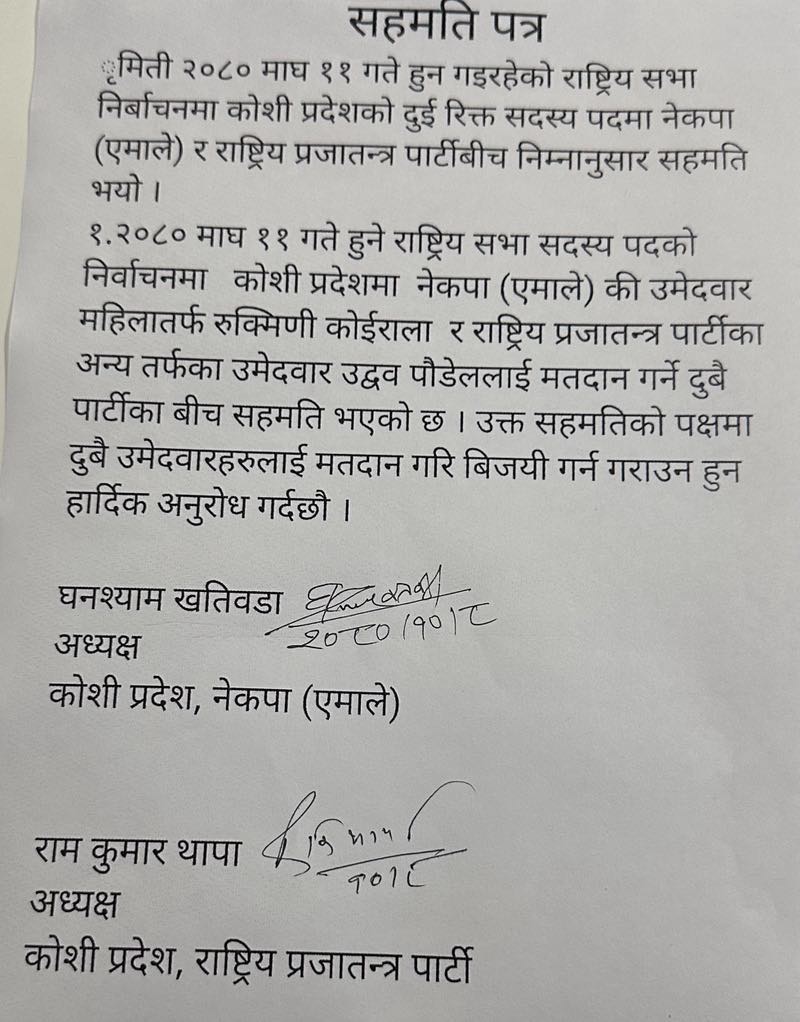 सहमति पत्र
ृमिती २०८० माघ ११ गते हुन गइरहेको राष्ट्रिय सभा
निर्बाचनमा कोशी प्रदेशको दुई रिक्त सदस्य पदमा नेकपा
(एमाले) र राष्ट्रिय प्रजातन्त्र पार्टीबीच निम्नानुसार सहमति
भयो ।
१.२०८० माघ ११ गते हुने राष्ट्रिय सभा सदस्य पदको
निर्वाचनमा कोशी प्रदेशमा नेकपा (एमाले) की उमेदवार
महिलातर्फ रुक्मिणी कोईराला र राष्ट्रिय प्रजातन्त्र पार्टीका
अन्य तर्फका उमेदवार उद्वव पौडेललाई मतदान गर्ने दुबै
पार्टीका बीच सहमति भएको छ । उक्त सहमतिको पक्षमा
दुबै उमेदवारहरुलाई मतदान गरि बिजयी गर्न गराउन हुन
हार्दिक अनुरोध गर्दछौ ।
घनश्याम खतिवडा
२०८०।१०।८
अध्यक्ष
कोशी प्रदेश, नेकपा (एमाले)
राम कुमार थापा
१०।८
अध्यक्ष
कोशी प्रदेश, राष्ट्रिय प्रजातन्त्र पार्टी